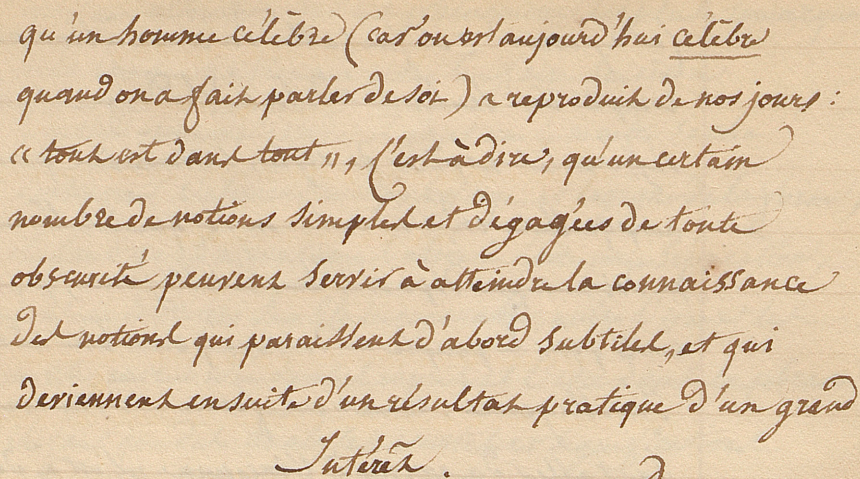 qu'un homme célèbre (car on est aujourd'hui célèbre
quand on a fait parler de soi) a reproduit de nos jours :
« tout est dans tout », c'est à dire, qu'un certain
nombre de notions simples et dégagées de toute
obscurité peuvent servir à atteindre la connaissance
des notions qui paraissent d'abord subtiles, et qui
deviennent ensuite d'un résultat pratique d'un grand
Intérêt.